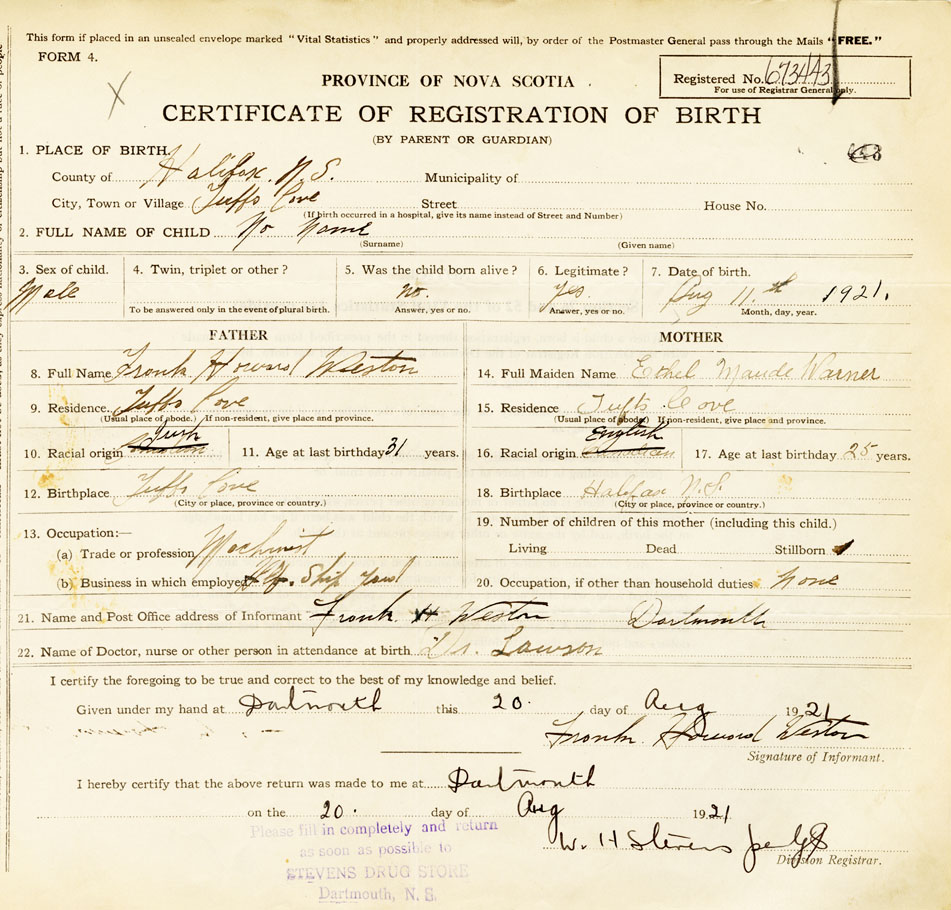 This form if placed in an unsealed envelope marked "Vital Statistics" and properly addressed will, by order of the Postmaster General pass through the Mails "FREE."
FORM 4.
Registered No. 673443
For use of Registrar General only.
PROVINCE OF NOVA SCOTIA
CERTIFICATE OF REGISTRATION OF BIRTH
(BY PARENT OR GUARDIAN)
1. PLACE OF BIRTH
County of Halifax. N.S. Municipality of
City, Town or Village Tuffs Cove Street House No.
(If birth occurred in a hospital, give its name instead of Street and Number)
2. FULL NAME OF CHILD No Name
(Surname) (Given name)
3. Sex of child. 4. Twin, triplet or other? 5. Was the child born alive? 6. Legitimate? 7. Date of birth.
Male no. Yes. Aug 11.th 1921.
To be answered only in the event of plural birth. Answer, yes or no. Answer, yes or no. Month, day, year.
FATHER MOTHER
8. Full Name Frank Howard Weston 14. Full Maiden Name Ethel Maude Warner
9. Residence. Tuffs Cove 15. Residence Tufts Cove
(Usual place of abode.) If non-resident, give place and province. (Usual place of abode) If non-resident, give place and province.
10. Racial origin Irish 11. Age at last birthday 31 years. 16. Racial origin English 17. Age at last birthday 25 years.
12. Birthplace Tuffs Cove 18. Birthplace Halifax N.S.
(City or place, province or country.) (City or place, province or country.)
13. Occupation:— 19. Number of children of this mother (including this child.)
(a) Trade or profession Machinist Living Dead Stillborn 1
(b) Business in which employed Ship Yard 20. Occupation, if other than household duties none
21. Name and Post Office address of Informant Frank H Weston Dartmouth
22. Name of Doctor, nurse or other person in attendance at birth Dr. Lawson
I certify the foregoing to be true and correct to the best of my knowledge and belief.
Given under my hand at Dartmouth this 20. day of Aug 1921
Frank Howard Weston
Signature of Informant.
I hereby certify that the above return was made to me at Dartmouth
on the 20. day of Aug 1921
Please fill in completely and return
as soon as possible to
STEVENS DRUG STORE
Dartmouth, N. S.
W. H Stevens
Division Registrar.